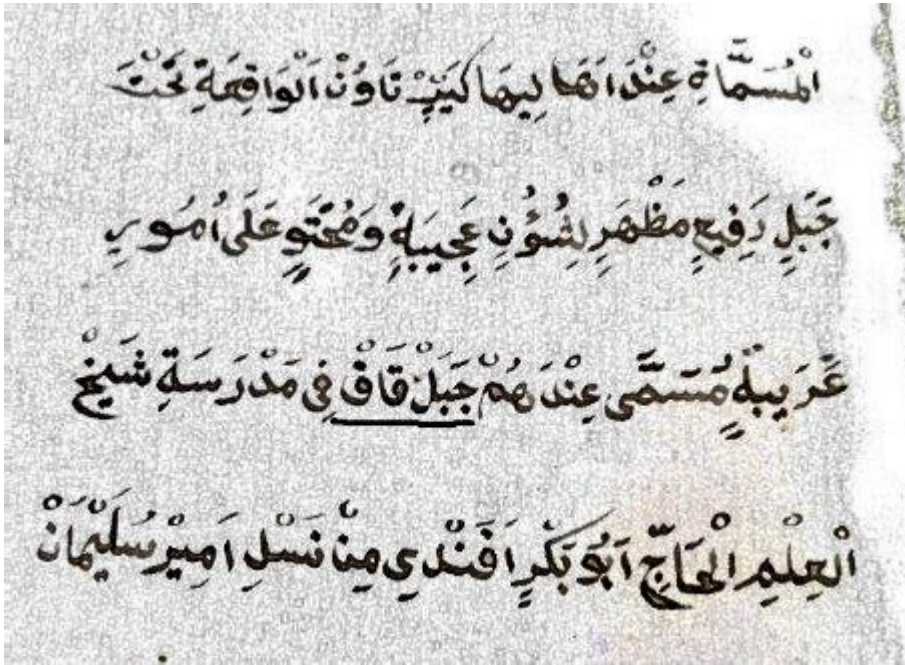 الْمُسَمَّاةِ عِنْدَ اَهَالِيهَا كَيَپْ تَاوُنْ اَلْوَاقِعَةِ تَحْتَ
جَبَلٍ رَفِيعٍ مَظْهَرِ لِشُؤُنٍ عَجِيبَةٍ وَمُحْتَوٍ عَلَى اُمُورٍ
غَرِيبَةٍ مُسَمًّى عِنْدَهُمْ جَبَلْ قَافْ فِى مَدْرَسَةِ شَيْخِ
الْعِلْمِ الْحَاجِّ اَبُو بَكْرِ اَفَنْدِي مِنْ نَسْلِ اَمِيرْ سُلَيْمَانْ